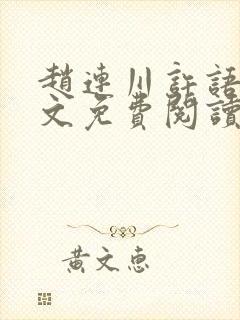 趙連川許語
文免費閱讀
黃文惠